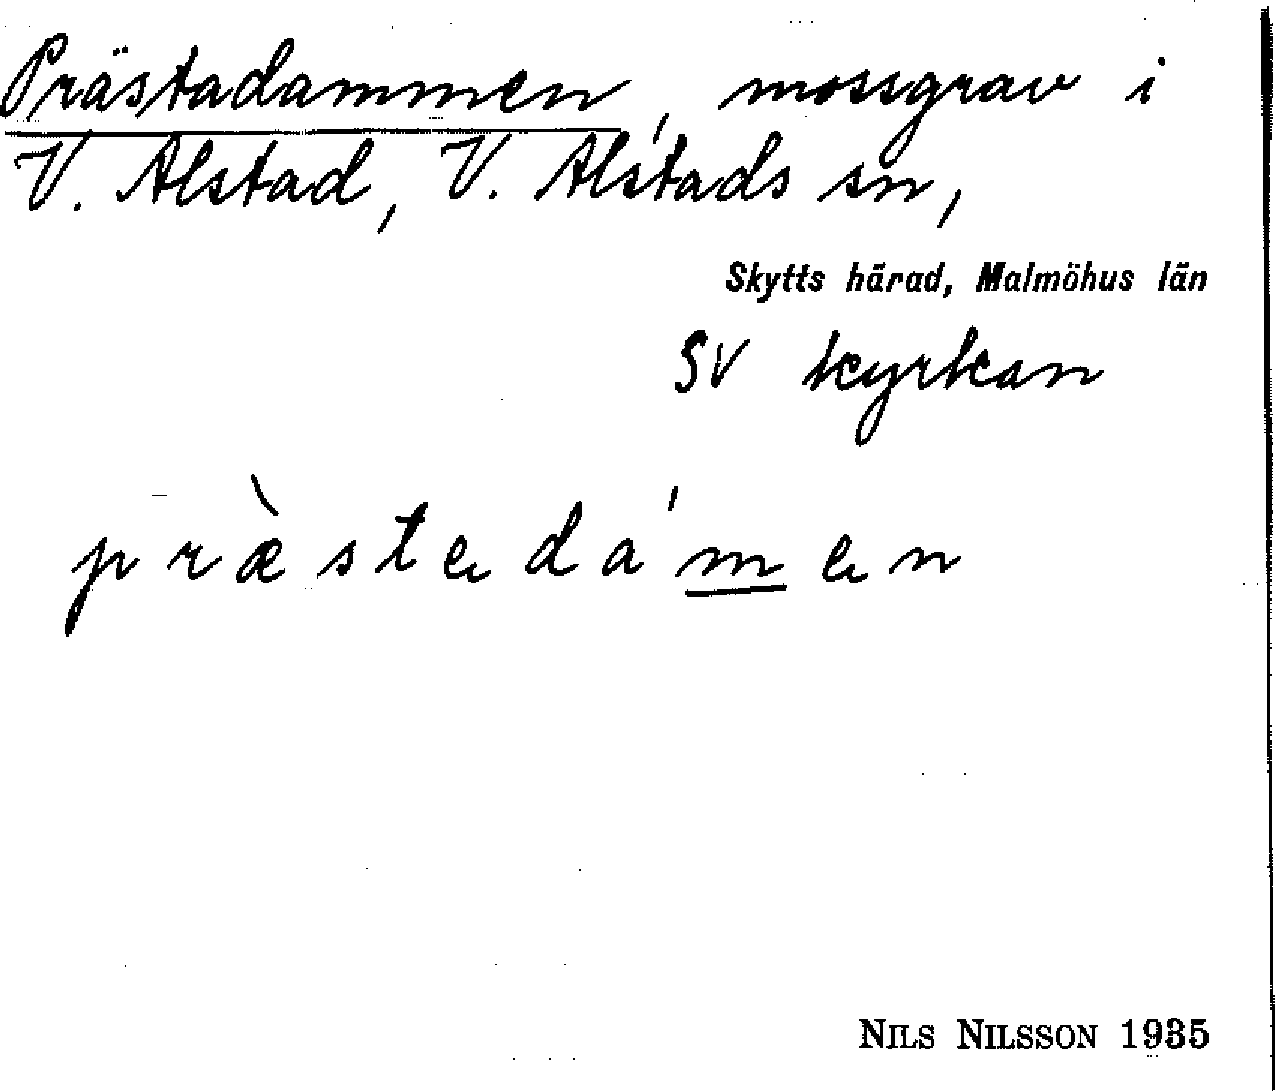 Prästadammen, mossgrav i
V. Alstad, V. Alstads sn,
Skytts härad, Malmöhus län
SV kyrkan
præ̀stedám̲en
NILS NILSSON 1935